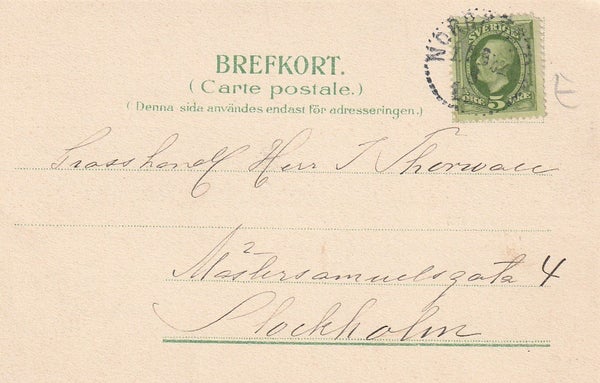 BREFKORT.
(Carte postale.)
(Denna sida användes endast för adresseringen.)
SVERIGE
5
Grosshandl Herr J Thorwall
Mästersamuelsgata 4
Stockholm